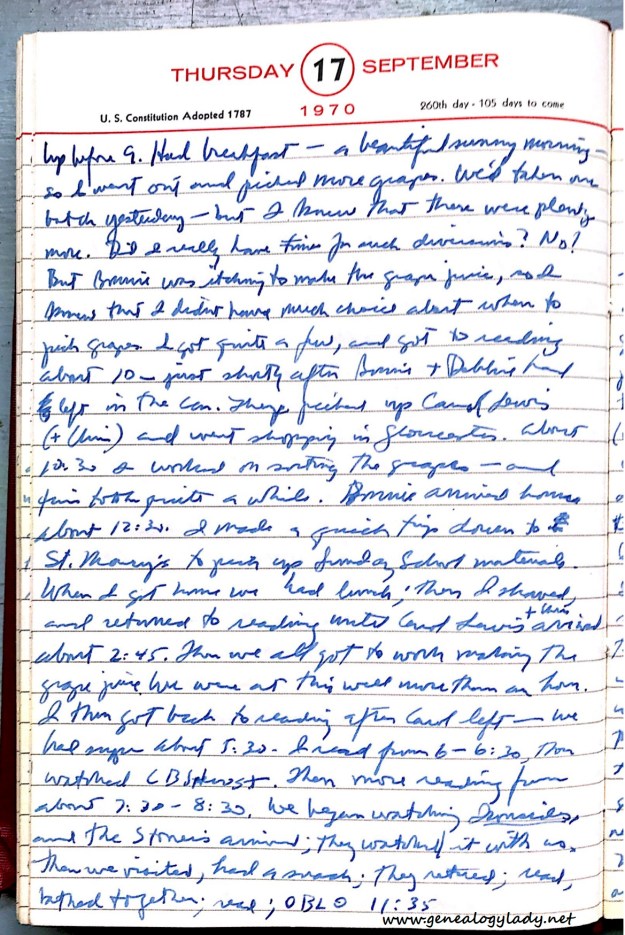 THURSDAY 17 SEPTEMBER
U. S. Constitution Adopted 1787
1970
260th day - 105 days to come
Up before 9. Had breakfast — a beautiful sunny morning —
so I went out and picked more grapes. We'd taken one
batch yesterday — but I knew that there were plenty
more. Did I really have time for such diversions? No!
But Bonnie was itching to make the grape juice, so I
knew that I didn't have much choice about when to
pick grapes. I got quite a few, and got to reading
about 10 — just shortly after Bonnie + Debbie had
left in the car. They picked up Carol Lewis
(+ Chris) and went shopping in Gloucester. About
10:30 I worked on sorting the grapes — and
this took quite a while. Bonnie arrived home
about 12:30. I made a quick trip down to
St. Mary's to pick up Sunday School materials.
When I got home we had lunch; then I shaved,
and returned to reading until Carol Lewis + Chris arrived
about 2:45. Then we all got to work making the
grape juice. We were at this well more than an hour.
I then got back to reading after Carol left — we
had supper about 5:30. I read from 6 - 6:30, then
watched CBS News. Then more reading from
about 7:30 - 8:30. We began watching Ironsides,
and the Stones arrived; they watched it with us.
Then we visited, had a snack; they retired; read,
bathed together; read; OBLO 11:35
www.genealogylady.net